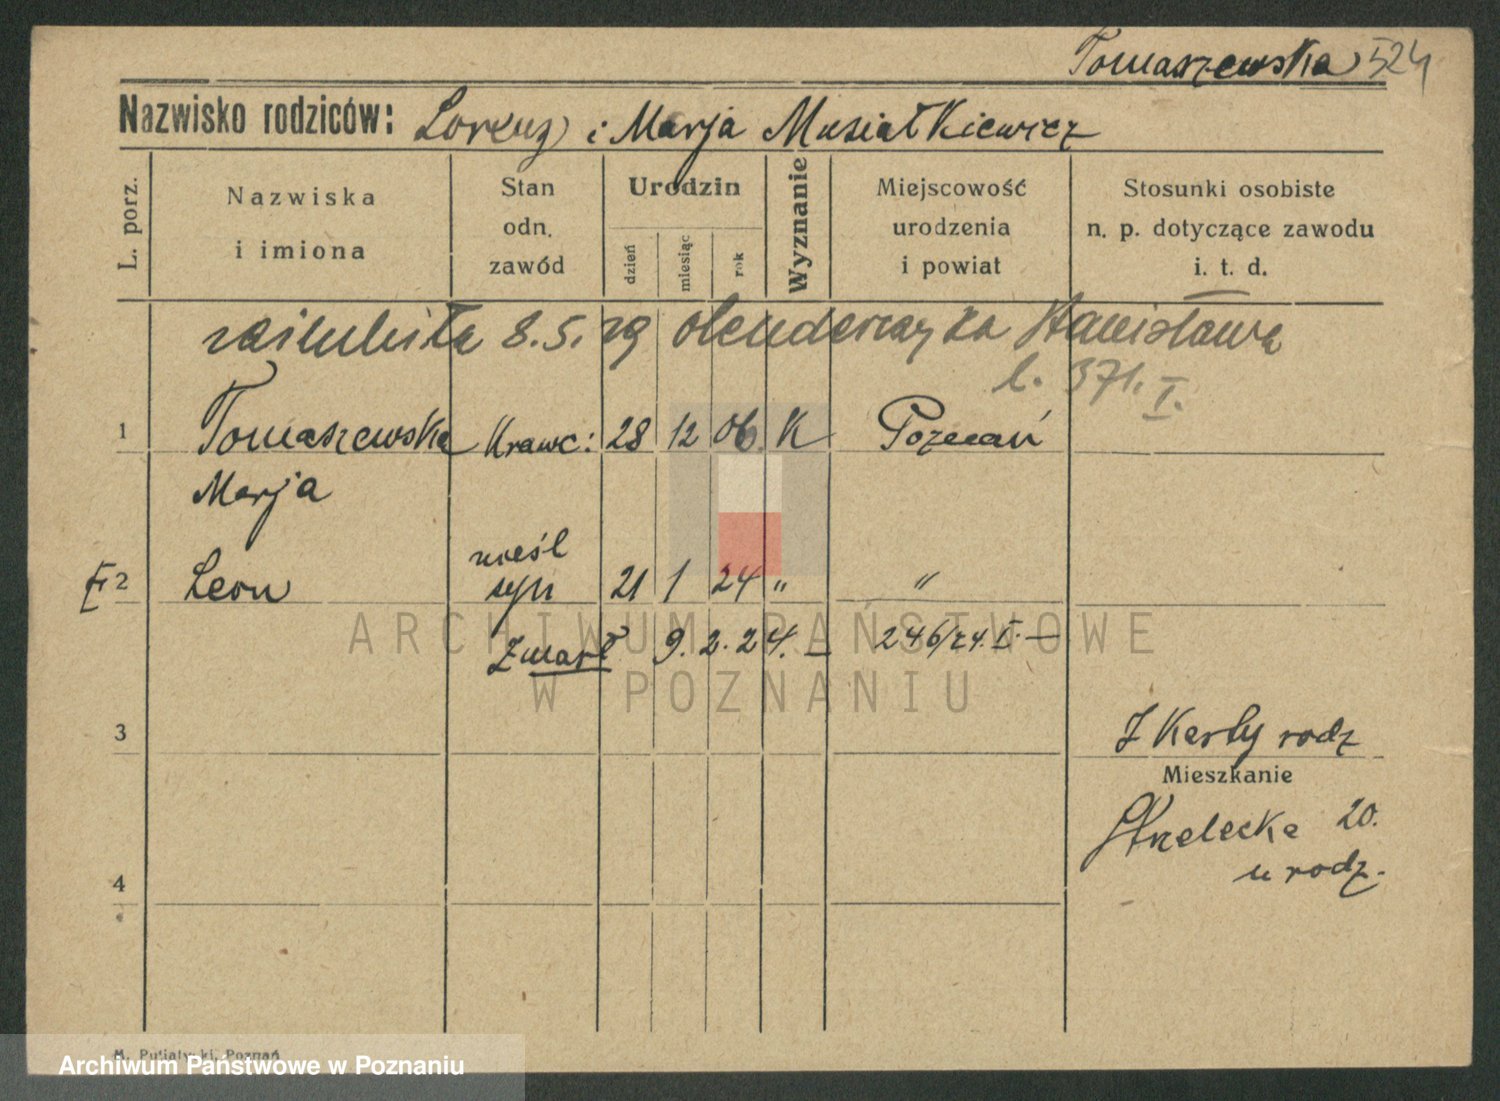 Tomaszewska 524
Nazwisko rodziców: Lorenz i Marja Musiałkiewicz
L. porz.
Nazwiska i imiona
Stan odn. zawód
Urodzin
dzień
miesiąc
rok
Wyznanie
Miejscowość urodzenia i powiat
Stosunki osobiste n. p. dotyczące zawodu i. t. d.
zaślubiła 8.5.29 Olenderczyka Stanisława
l. 371. I.
1 Tomaszewska Krawc: 28 12 06. K Poznań
Marja
2 Leon nieśl syn 21 1 24 " "
Zmarł 9. 2. 24. — 246/24. I. —
ARCHIWUM PAŃSTWOWE
W POZNANIU
3
Z Karty rodz
Mieszkanie
Strzelecka 20.
u rodz.
4
M. Putiatycki, Poznań
Archiwum Państwowe w Poznaniu